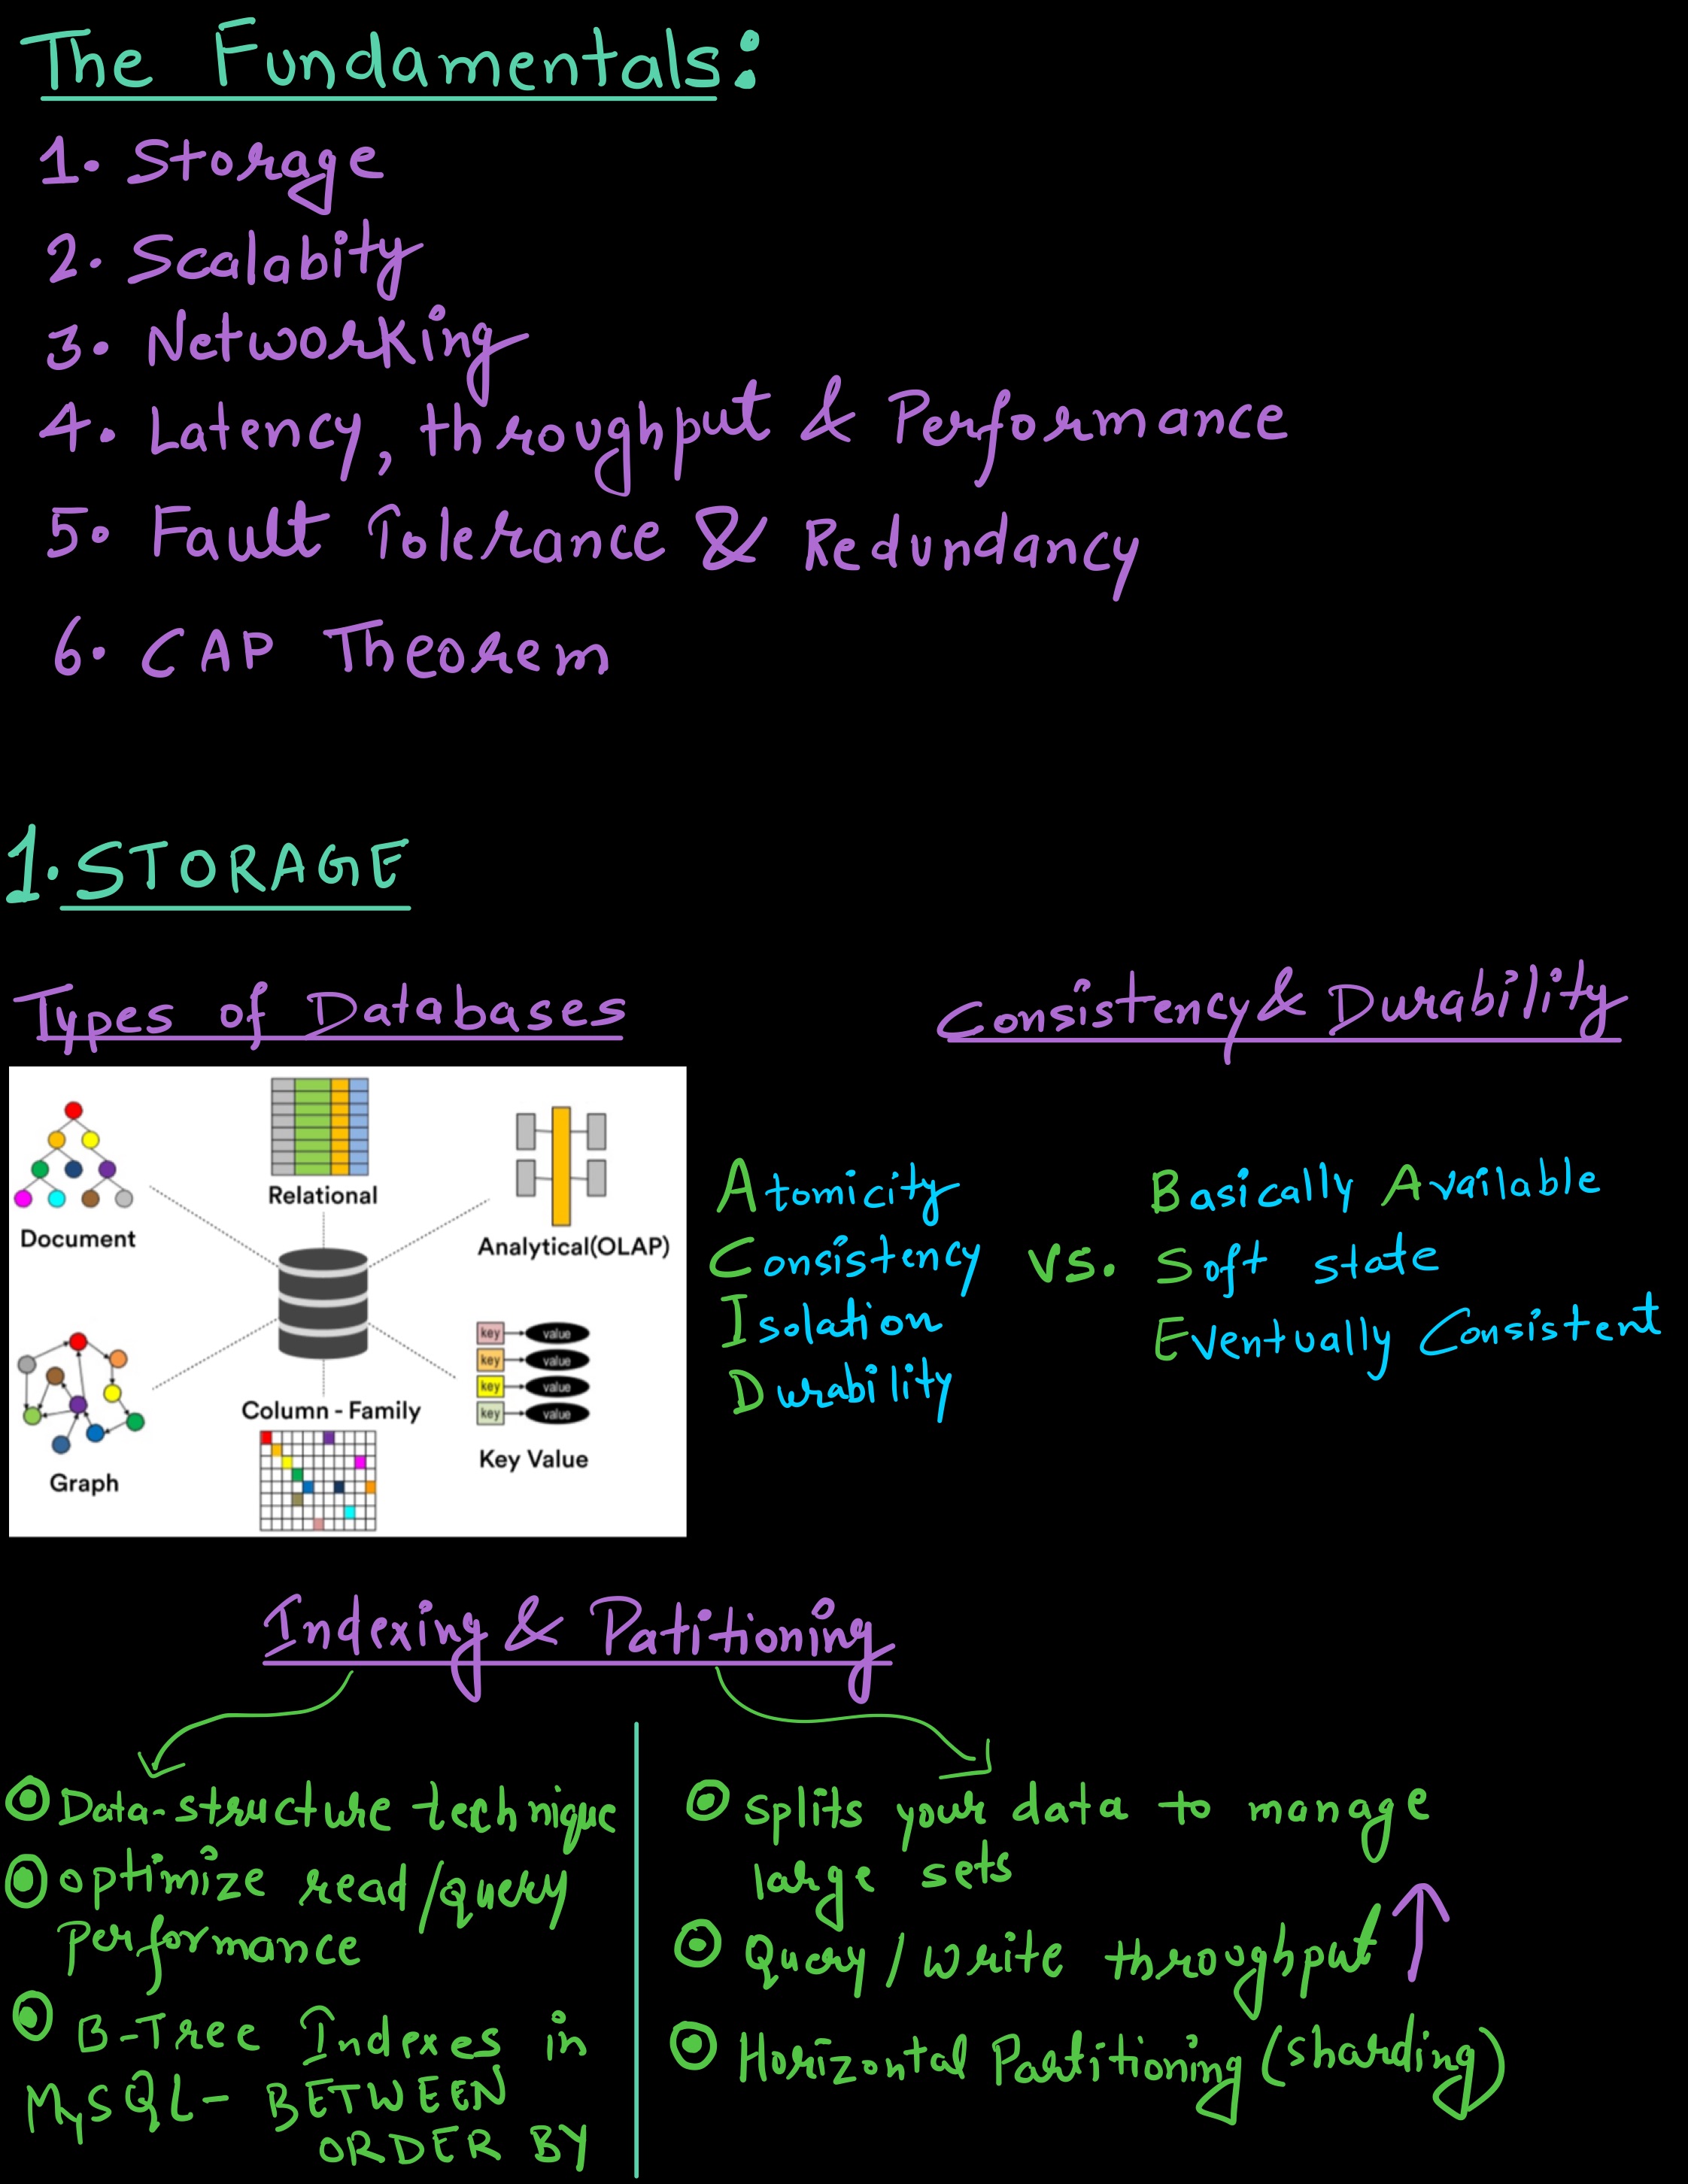 The Fundamentals:
1. Storage
2. Scalabity
3. Networking
4. Latency, throughput & Performance
5. Fault Tolerance & Redundancy
6. CAP Theorem
1. STORAGE
Types of Databases
Document
Relational
Analytical(OLAP)
Graph
Column - Family
key value
key value
key value
key value
Key Value
Consistency & Durability
Atomicity
Consistency
Isolation
Durability
vs.
Basically Available
Soft state
Eventually Consistent
Indexing & Patitioning
Data-structure technique
optimize read/query
performance
B-Tree Indexes in
MySQL- BETWEEN
ORDER BY
splits your data to manage
large sets
Query / write throughput ↑
Horizontal Partitioning (sharding)